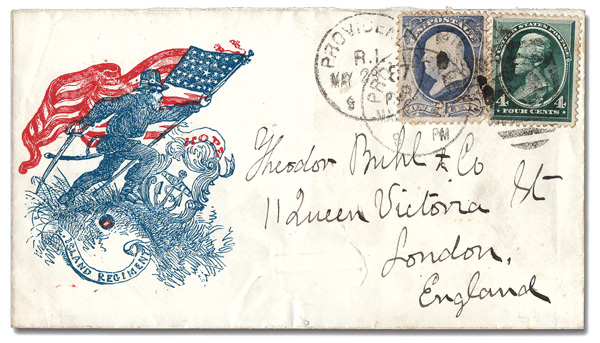 PROVIDEN
R.I.
MAY 28
POSTAGE
ONE CENT
UNITED STATES POSTAGE
4
4
FOUR CENTS
PM
HOPE
ISLAND REGIMENT
Theodor Buhl & Co
11 Queen Victoria St
London,
England